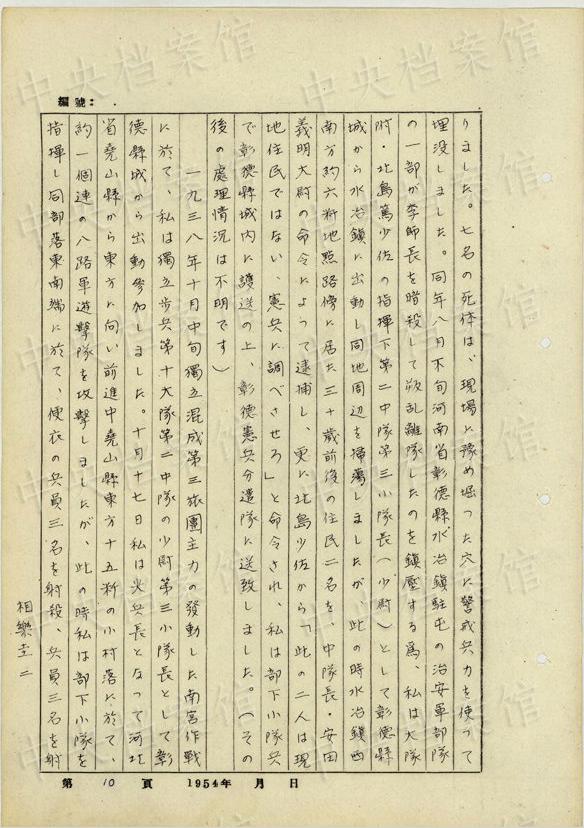 編號：
りました。七名の死体は、現場に豫め堀った穴に警戒兵力を使って
埋没しました。同年八月下旬河南省彰德縣水冶鎮駐屯の治安軍部隊
の一部が李師長を暗殺して叛乱離隊したのを鎮壓する爲、私は大隊
附・北島篤少佐の指揮下第二中隊第三小隊長（少尉）として彰德縣
城から水冶鎮に出動し同地周辺を掃蕩しましたが、此の時水冶鎮西
南方約六粁地點路傍に居た三十歳前後の住民二名を、中隊長・安田
義明大尉の命令によって逮捕し、更に北島少佐から「此の二人は現
地住民ではない、憲兵に調べさせろ」と命令され、私は部下小隊兵
で彰德縣城内に護送の上、彰德憲兵分遣隊に送致しました。（その
後の處理情況は不明です）
一九三八年十月中旬獨立混成第三旅團主力の發動した南宮作戰
に於て、私は獨立步兵第十大隊第二中隊の少尉第三小隊長として彰
德縣城から出動參加しました。十月十七日私は尖兵長となって河北
省堯山縣から東方に向い前進中堯山縣東方十五粁の小村落に於て、
約一個連の八路軍遊擊隊を攻擊しましたが、此の時私は部下小隊を
指揮し同部落東南端に於て、便衣の兵員三名を射殺、兵員三名を射
相樂圭二
第 10 頁 1954年 月 日
中央档案馆